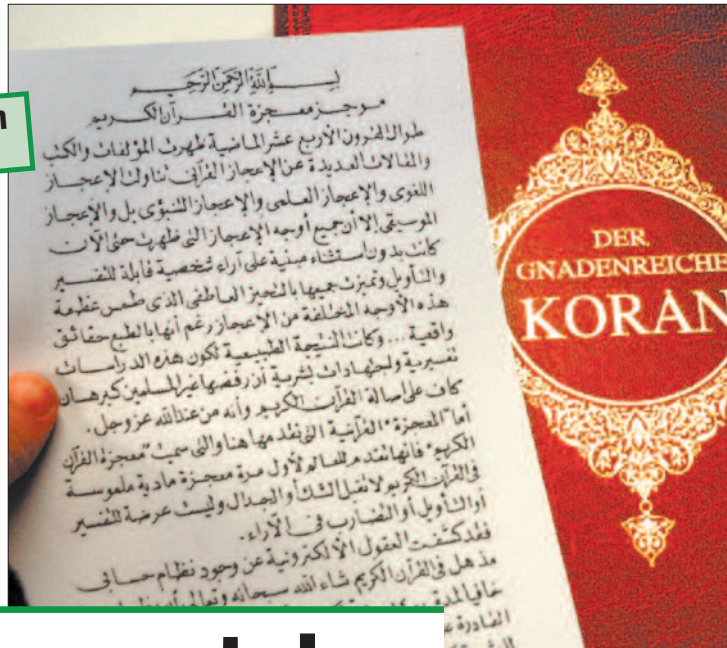 بسم الله الرحمن الرحيم
موجز معجزة القرآن الكريم
طوال القرون الأربع عشر الماضية ظهرت المؤلفات والكتب
والمقالات العديدة عن الإعجاز القرآني تناولت الإعجاز
اللغوى والإعجاز العلمى والإعجاز التنبؤى بل والإعجاز
الموسيقى إلا أن جميع أوجه الإعجاز التى ظهرت حتى الآن
كانت بدون استثناء مبنية على آراء شخصية قابلة للتفسير
والتأويل وتميزت جميعها بالتحيز العاطفى الذى طمس عظمة
هذه الأوجه المختلفة من الإعجاز رغم أنها بالطبع حقائق
واقعية ... وكانت النتيجة الطبيعية لكون هذه الدراسات
تفسيرية واجتهادات بشرية أن رفضها غير المسلمين كبرهان
كاف على اصالة القرآن الكريم وأنه من عند الله عز وجل.
أما "المعجزة" القرآنية التى نقدمها هنا والتى سميت "معجزة القرآن
الكريم" فانها تقدم للعالم لأول مرة معجزة مادية ملموسة
فى القرآن الكريم لا تقبل الشك أو الجدال وليست عرضة للتفسير
أو التأويل أو التضارب فى الآراء.
فقد كشفت العقول الألكترونية عن وجود نظام حسابى
مذهل فى القرآن الكريم شاء الله سبحانه وتعالى
خافيا
القادرة
DER
GNADENREICHE
KORAN
n